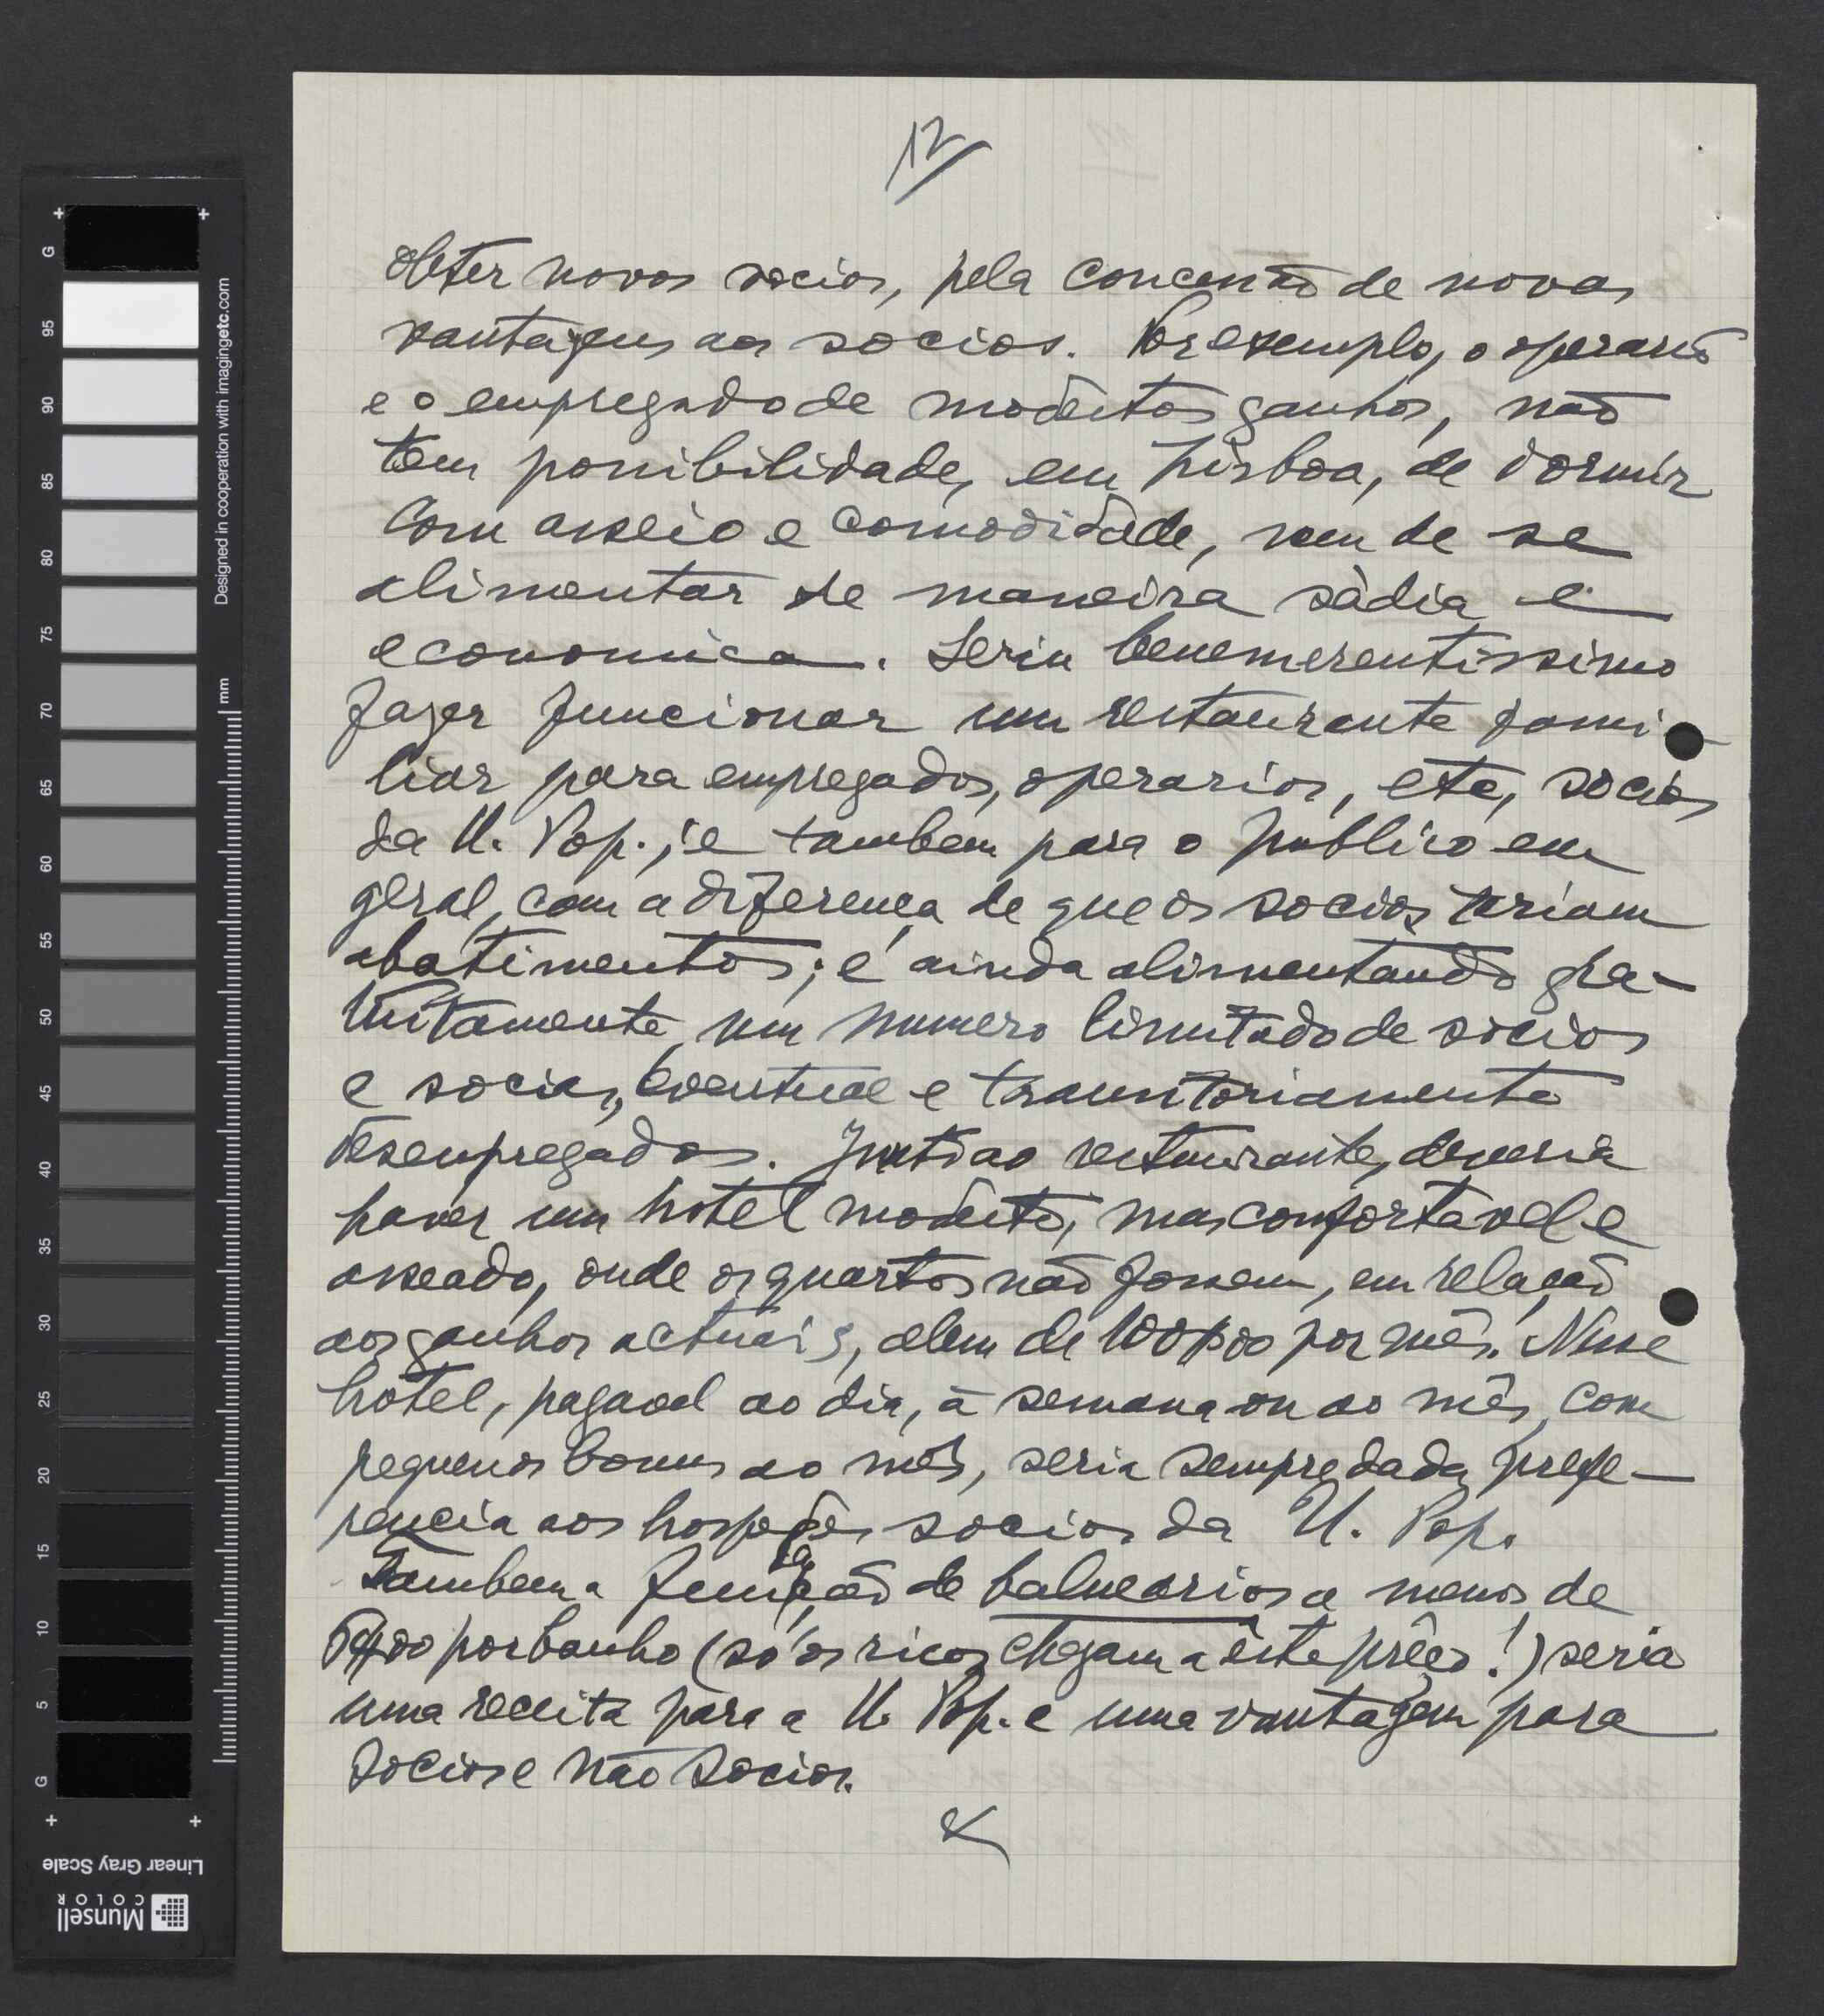 12
obter novos socios, pela concessão de novas
vantagens aos socios. Por exemplo, o operario
e o empregado de modestos ganhos, não
tem possibilidade, em Lisboa, de dormir
com asseio e comodidade, nem de se
alimentar de maneira sàdia e
economica. Seria benemerentissimo
fazer funcionar um restaurante fami-
liar para empregados, operarios, etc, socios
da U. Pop.; e tambem para o publico em
geral, com a diferença de que os socios teriam
abatimentos; e ainda alimentando gra-
tuitamente um numero limitado de socios
e socias, eventual e transitoriamente
desempregados. Junto ao restaurante, deveria
haver um hotel modesto, mas confortavel e
asseado, onde os quartos não fossem, em relação
aos ganhos actuais, alem de 100$00 por mês. Nesse
hotel, pagavel ao dia, à semana ou ao mês, com
pequenos bonus ao mês, seria sempre dada prefe-
rencia aos hospedes socios da U. Pop.
Tambem a fundação de balnearios a menos de
$00 por banho (só os ricos chegam a êste prêço!) seria
uma receita para a U. Pop. e uma vantagem para
socios e não socios.
G 95 90 85 80 75 70 65 60 55 50 45 40 35 30 25 20 15 10 5 G
mm
Designed in cooperation with imagingetc.com
Linear Gray Scale
Munsell
COLOR